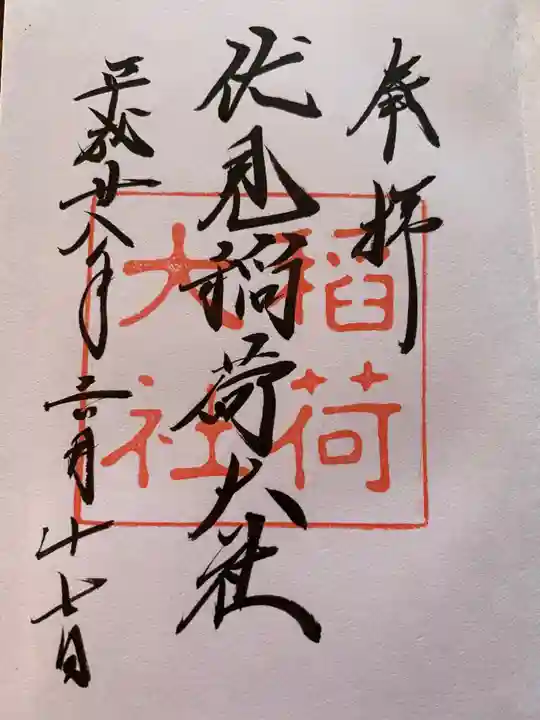 奉拝
伏見稲荷大社
平成廿八年六月十七日
稲荷
大社